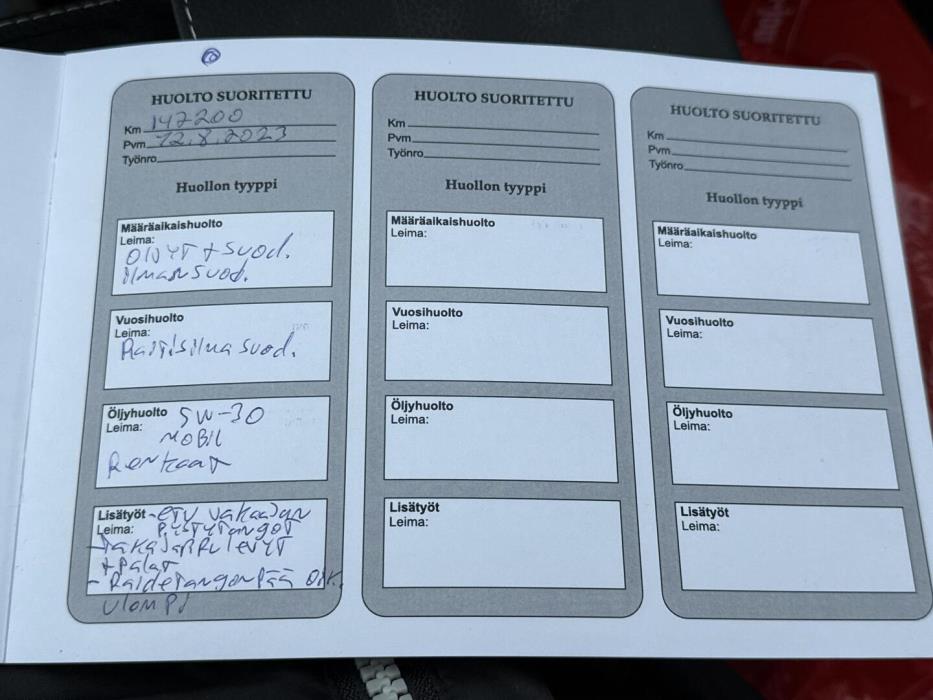 HUOLTO SUORITETTU
Km 147200
Pvm 12.8.2023
Työnro
Huollon tyyppi
Määräaikaishuolto
Leima:
ÖLJYT + SUOD.
ILMANSUOD.
Vuosihuolto
Leima:
Raitisilmasuod.
Öljyhuolto 5W-30
Leima:
MOBIL
Renkaat
Lisätyöt - ETU vakaajan
Leima: PYSTYTANGOT
- TAKAJARRULEVYT
+ PALAT
- RAIDETANGONPÄÄ OIK.
ULOMPI
HUOLTO SUORITETTU
Km
Pvm
Työnro
Huollon tyyppi
Määräaikaishuolto
Leima:
Vuosihuolto
Leima:
Öljyhuolto
Leima:
Lisätyöt
Leima:
HUOLTO SUORITETTU
Km
Pvm
Työnro
Huollon tyyppi
Määräaikaishuolto
Leima:
Vuosihuolto
Leima:
Öljyhuolto
Leima:
Lisätyöt
Leima: